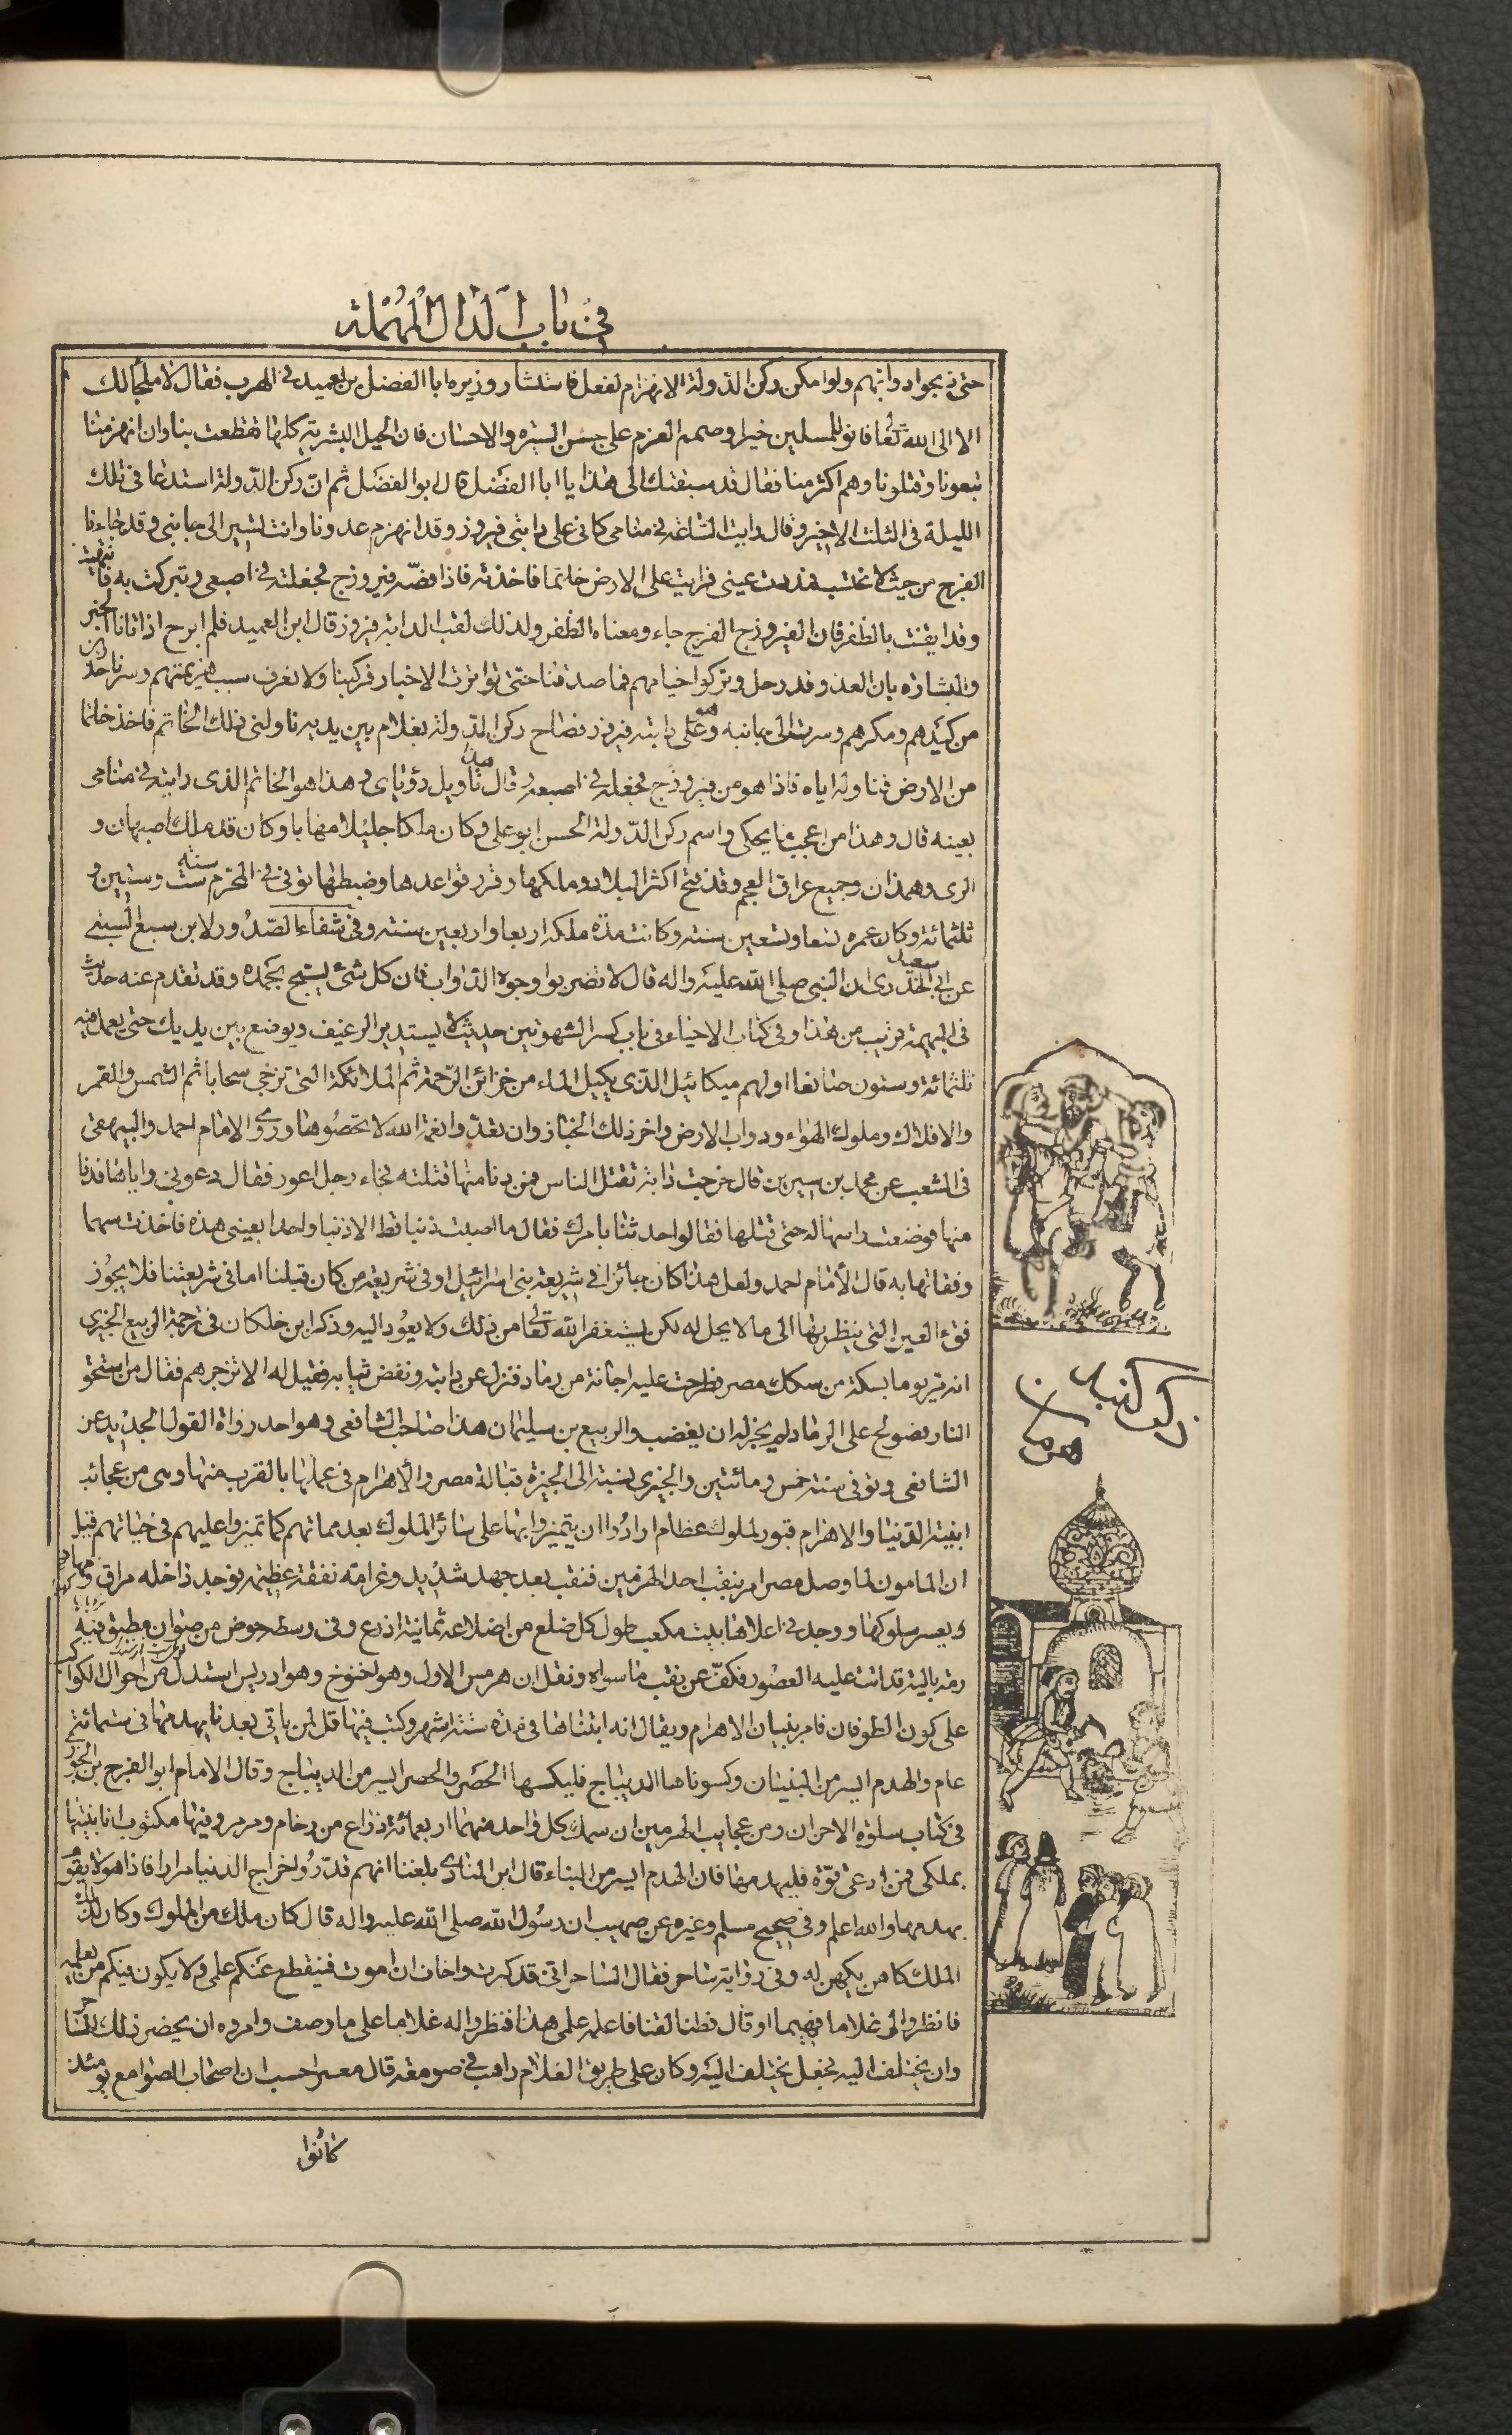 في باب الدال المهملة
حتى ذبحوا دوابهم ولو امكن ركن الدولة الانهزام لفعل فاستشار وزيره ابا الفضل بن العميد في الهرب فقال لا ملجأ لك
الا الى الله تعالى فانو للمسلمين خيرا وصمم العزم على حسن السيرة والاحسان فان الحيل البشرية كلها تقطعت بنا وان انهزمنا
تبعونا وقتلونا وهم اكثر منا فقال قد سبقتك الى هذا يا ابا الفضل قال ابو الفضل ثم ان ركن الدولة استدعانى تلك
الليلة فى الثلث الاخير وقال رايت الساعة في منامى كانى على دابتى فيروز وقد انهزم عدونا وانت تسير الى جانبى وقد جاءنا
الفرج من حيث لا نحتسب فمددت عينى فرايت على الارض خاتما فاخذته فاذا فصه فيروزج فجعلته في اصبعى وتبركت به فانتبهت
وقد ايقنت بالظفر فان الفيروزج الفرج جاء ومعناه الظفر ولذلك لقب الدابة فيروز قال ابن العميد فلم ابرح اذ اتانا الخبر
والبشارة بان العدو قد رحل وتركوا خيامهم فما صدقنا حتى تواترت الاخبار فركبنا ولا نعرف سبب هزيمتهم وسرنا حذرين
من كيدهم ومكرهم وسرت الى جانبه وهو على دابته فيروز فصاح ركن الدولة بغلام بين يديه ناولنى ذلك الخاتم فاخذ خاتما
من الارض فناوله اياه فاذا هو من فيروزج فجعله في اصبعه وقال هذا تاويل رؤياى وهذا هو الخاتم الذى رايته في منامى
بعينه قال وهذا من اعجب ما يحكى واسم ركن الدولة الحسن ابو على وكان ملكا جليلا مهابا وكان قد ملك اصبهان و
الرى وهمذان وجميع عراق العجم وقد فتح اكثر البلاد وملكها وقرر قواعدها وضبطها توفى في المحرم سنة ست وستين و
ثلثمائة وكان عمره تسعا وتسعين سنة وكانت مدة ملكه اربعا واربعين سنة وفى شفاء الصدور لابن سبع السبتى
عن ابى سعيد الخدرى ان النبى صلى الله عليه واله قال لا تضربوا وجوه الدواب فان كل شئ يسبح بحمده وقد تقدم عنه حديث
فى البهيمة قريب من هذا وفى كتاب الاحياء فى باب كسر الشهوتين حديث لا يستدير الرغيف ويوضع بين يديك حتى يعمل فيه
ثلثمائة وستون صانعا اولهم ميكائيل الذى يكيل الماء من خزائن الرحمة ثم الملائكة التى تزجى سحابا ثم الشمس والقمر
والافلاك وملوك الهواء ودواب الارض واخر ذلك الخباز وان تعدوا نعمة الله لا تحصوها وروى الامام احمد والبيهقى
فى الشعب عن محمد بن سيرين قال خرجت دابة تقتل الناس فمن دنا منها قتلته فجاء رجل اعور فقال دعونى واياها فدنا
منها فوضعت راسها له حتى قتلها فقالوا حدثنا بامرك فقال ما اصبت ذنبا قط الا ذنبا واحدا بعينى هذه فاخذت سهما
وفقاتها به قال الامام احمد ولعل هذا كان جائزا في شريعة بنى اسرائيل او فى شريعة من كان قبلنا اما فى شريعتنا فلا يجوز
فقء العين التى ينظر بها الى ما لا يحل له لكن يستغفر الله تعالى من ذلك ولا يعود اليه وذكر ابن خلكان فى ترجمة الربيع الجيزى
انه مر يوما بسكة من سكك مصر فطرحت عليه اجانة من رماد فنزل عن دابته ونفض ثيابه فقيل له الا تزجرهم فقال من استحق
النار فصولح على الرماد لم يجز له ان يغضب والربيع بن سليمان هذا صاحب الشافعى وهو احد رواة القول الجديد عن
الشافعى وتوفى سنة خمس ومائتين والجيزى نسبة الى الجيزة قبالة مصر والاهرام فى عملها بالقرب منها وهى من عجائب
ابنية الدنيا والاهرام قبور لملوك عظام ارادوا ان يتميزوا بها على سائر الملوك بعد مماتهم كما تميزوا عليهم في حياتهم قيل
ان المامون لما وصل مصر امر بنقب احد الهرمين فنقب بعد جهد شديد وغرامة نفقة عظيمة فوجد داخله مراق ومهاوى
ويعسر سلوكها ووجد في اعلاها بيت مكعب طول كل ضلع من اضلاعه ثمانية اذرع وفى وسطه حوض من صوان مطبق فيه
رمة بالية قد اتت عليه العصور فكف عن نقب ما سواه ونقل ان هرمس الاول وهو اخنوخ وهو ادريس استدل من احوال الكواكب
على كون الطوفان فامر ببنيان الاهرام ويقال انه ابتناها فى مدة ستة اشهر وكتب فيها قل لمن ياتى بعدنا يهدمها فى ستمائة
عام والهدم ايسر من البنيان وكسوناها الديباج فليكسها الحصر والحصر ايسر من الديباج وقال الامام ابو الفرج بن الجوزى
فى كتاب سلوة الاحزان ومن عجايب الهرمين ان سمك كل واحد منهما اربعمائة ذراع من رخام ومرمر وفيها مكتوب انا بنيتها
بملكى فمن ادعى قوة فليهدمها فان الهدم ايسر من البناء قال ابن المنادى بلغنا انهم قدروا خراج الدنيا مرارا فاذا هو لا يقوم
بهدمها والله اعلم وفى صحيح مسلم وغيره عن صهيب ان رسول الله صلى الله عليه واله قال كان ملك من الملوك وكان لذلك
الملك كاهن يكهن له وفى رواية ساحر فقال الساحر انى قد كبرت واخاف ان اموت فينقطع عنكم علمى ولا يكون فيكم من يعلمه
فانظروا لى غلاما فهيما او قال فطنا لقنا فاعلمه علمى هذا فنظروا له غلاما على ما وصف وامروه ان يحضر ذلك الساحر
وان يختلف اليه فجعل يختلف اليه وكان على طريق الغلام راهب في صومعة قال معمر احسب ان اصحاب الصوامع يومئذ
كانوا
هرمان